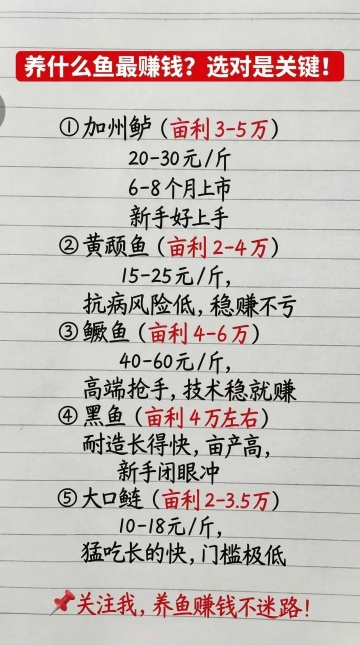 养什么鱼最赚钱？选对是关键！
①加州鲈（亩利3-5万）
20-30元/斤
6-8个月上市
新手好上手
②黄颃鱼（亩利2-4万）
15-25元/斤，
抗病风险低，稳赚不亏
③鳜鱼（亩利4-6万）
40-60元/斤，
高端抢手，技术稳就赚
④黑鱼（亩利4万左右）
耐造长得快，亩产高，
新手闭眼冲
⑤大口鲢（亩利2-3.5万）
10-18元/斤，
猛吃长的快，门槛极低
📌关注我，养鱼赚钱不迷路！